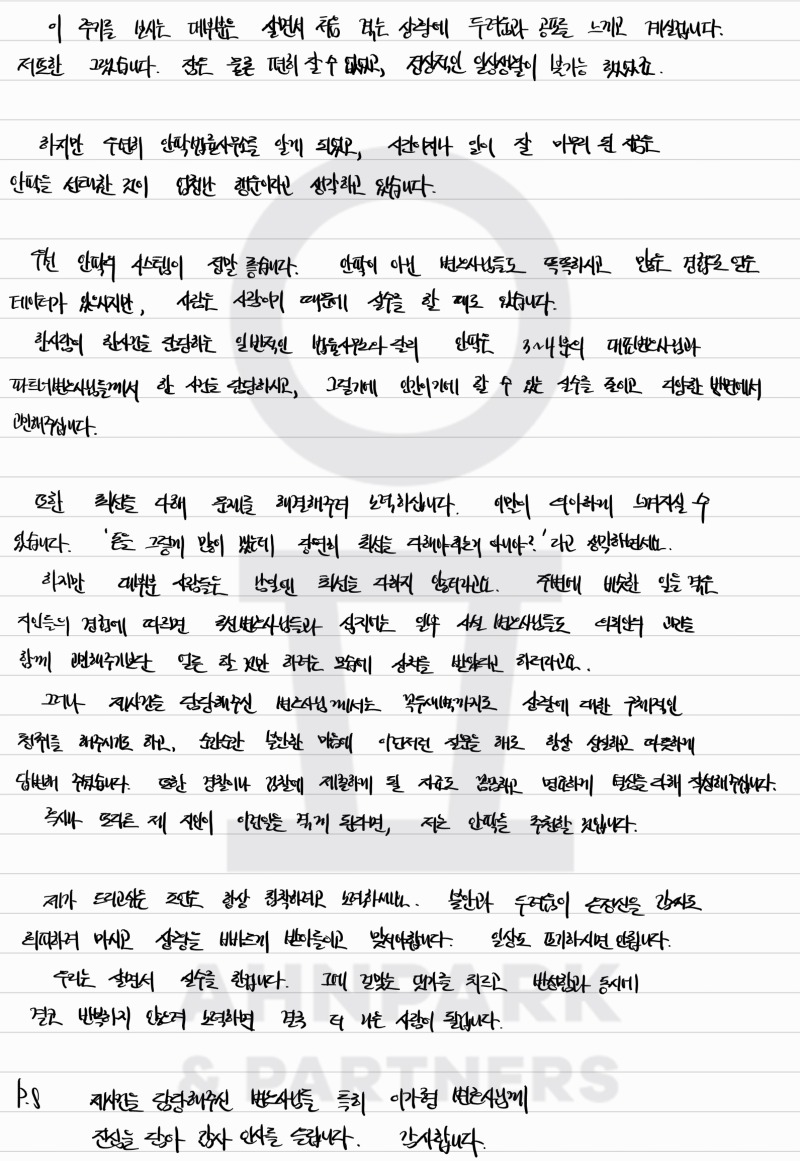 이 후기를 보시는 대부분은 살면서 처음 겪는 상황에 두려움과 공포를 느끼고 계실겁니다.
저또한 그랬습니다. 잠은 물론 편히 잘 수 없었고, 정상적인 일상생활이 불가능 했었고요.
하지만 우연히 안팍법률사무소를 알게 되었고, 시간이지나 일이 잘 마무리 된 지금은
안팍을 선택한 것이 엄청난 행운이라고 생각하고 있습니다.
우선 안팍의 시스템이 정말 좋습니다. 안팍이 아닌 변호사님들도 똑똑하시고 많은 경험으로 얻은
데이터가 있으시지만, 사람은 사람이기 때문에 실수를 할 때도 있습니다.
한사람이 한사건을 담당하는 일반적인 법률사무소와 달리 안팍은 3~4분의 대표변호사님과
파트너변호사님들께서 한 사건을 담당하시고, 그렇기에 인간이기에 할 수 있는 실수를 줄이고 다양한 방면에서
고민해주십니다.
또한 최선을 다해 문제를 해결해주려 노력하십니다. 이말이 의아하게 느껴지실 수
있습니다. '돈을 그렇게 많이 받는데 당연히 최선을 다해야하는거 아니야?' 라고 생각하실텐데요.
하지만 대부분 사람들은 남일엔 최선을 다하지 않더라고요. 주변에 비슷한 일을 겪은
지인들의 경험에 따르면 국선변호사님들과 심지어는 일부 사선 변호사님들도 의뢰인의 고민을
함께 고민해주기보단 얼른 할 것만 하려는 모습에 상처를 받았다고 하더라고요.
그러나 제사건을 담당해주신 변호사님께서는 꼭두새벽까지도 상황에 대한 구체적인
청취를 해주시기도 하고, 순간순간 불안한 마음에 이런저런 질문을 해도 항상 성실하고 따뜻하게
답변해 주셨습니다. 또한 경찰이나 검찰에 제출하게 될 자료도 꼼꼼하고 명료하게 최선을 다해 작성해주십니다.
혹시나 또다른 제 지인이 이런일을 겪게 된다면, 저는 안팍을 추천할 것입니다.
제가 드리고싶은 조언은 항상 침착하려고 노력하세요. 불안과 두려움이 온정신을 감싸도
회피하려 마시고 상황을 빠르게 받아들이고 맞서야합니다. 일상도 포기하시면 안됩니다.
우리는 살면서 실수를 한겁니다. 그에 걸맞는 댓가를 치르고 반성함과 동시에
결코 반복하지 않으려 노력하면 결국 더 나은 사람이 될겁니다.
P.S 제사건을 담당해주신 변호사님들 특히 이가형 변호사님께
진심을 담아 감사 인사를 올립니다. 감사합니다.
AHNPARK
& PARTNERS